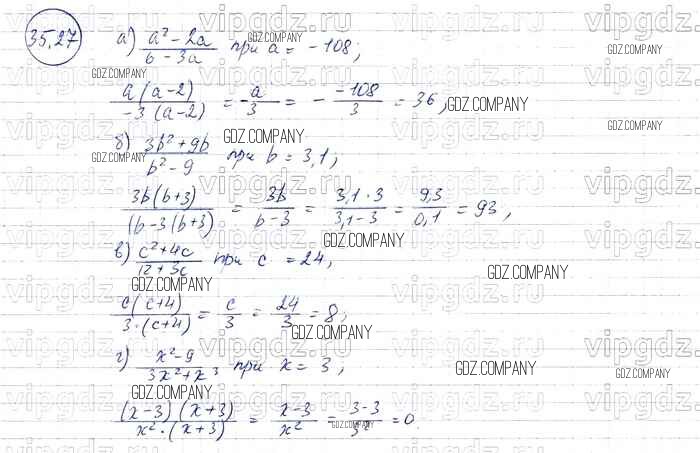 35.27
а) (a² - 2a)/(6 - 3a) при a = -108;
a(a-2)/(-3(a-2)) = -a/3 = - -108/3 = 36,
б) (3b² + 9b)/(b² - 9) при b = 3,1;
3b(b+3)/((b-3(b+3)) = 3b/(b-3) = (3,1·3)/(3,1-3) = 9,3/0,1 = 93,
в) (c² + 4c)/(12 + 3c) при c = 24,
c(c+4)/(3·(c+4)) = c/3 = 24/3 = 8;
г) (x² - 9)/(3x² + x³) при x = 3;
(x-3)(x+3)/(x²·(x+3)) = (x-3)/x² = (3-3)/3² = 0
vipgdz.ru
GDZ.COMPANY